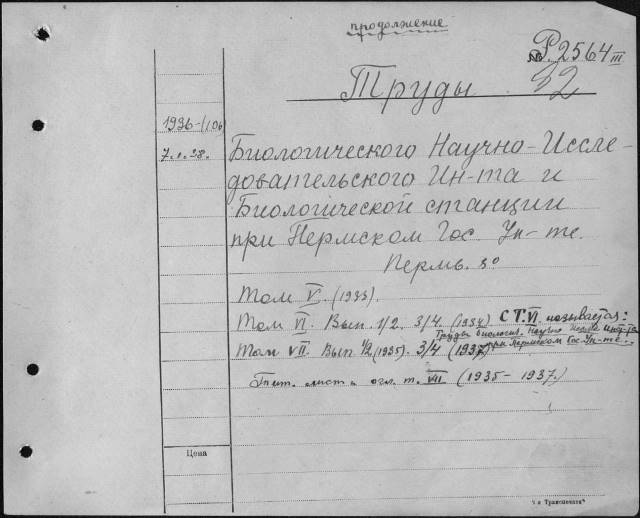 продолжение
№ Р.2564 III
Труды 32
1936-(1.06)
7.I.38. Биологического Научно-Иссле-
довательского Ин-та и
Биологической станции
при Пермском Гос. Ун-те.
Пермь. 8°
Том V. (1933).
Том VI. Вып. 1/2. 3/4. (1934) С Т. VI. называется:
Труды биологич. Научно Исслед. Инст-та
при Пермском Гос. Ун-те.
Том VII. Вып 1/2 (1935). 3/4 (1937)
Тит. лист и огл. т. VII (1935-1937.)
Цена